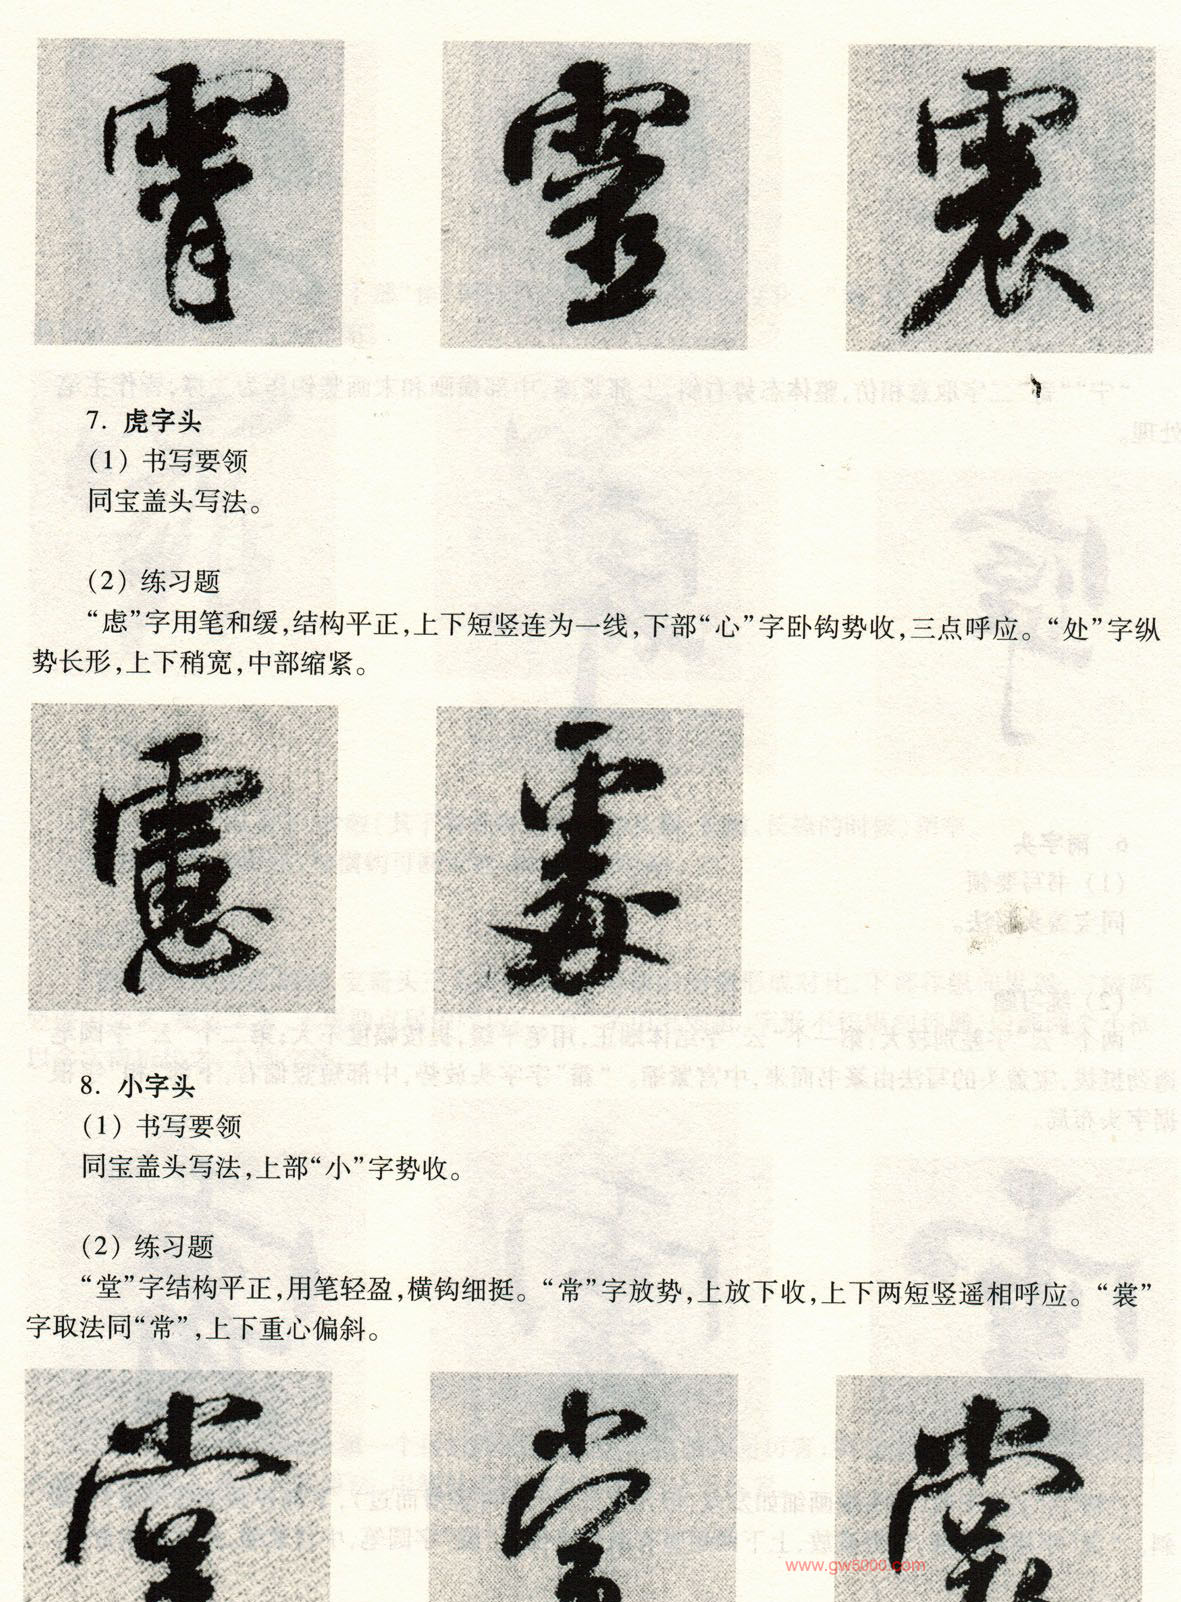 霄 靈 震
7. 虎字头
(1) 书写要领
同宝盖头写法。
(2) 练习题
“虑”字用笔和缓,结构平正,上下短竖连为一线,下部“心”字卧钩势收,三点呼应。“处”字纵
势长形,上下稍宽,中部缩紧。
慮 處
8. 小字头
(1) 书写要领
同宝盖头写法,上部“小”字势收。
(2) 练习题
“堂”字结构平正,用笔轻盈,横钩细挺。“常”字放势,上放下收,上下两短竖遥相呼应。“裳”
字取法同“常”,上下重心偏斜。
堂 常 裳
www.gw5000.com